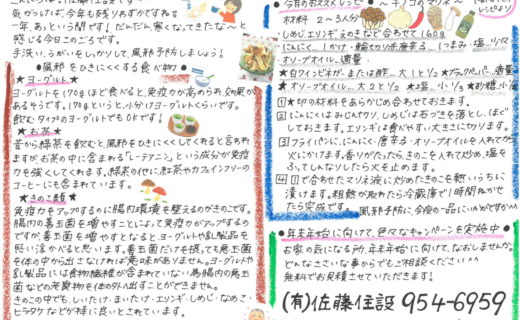 気がつけば、今年も残りわずかですね
一年、あっという間です!だんだん寒くなってきたな～と
感じる今日このごろです。
手洗い、うがいをしっかりして、風邪予防しましょう!
●風邪をひきにくくする食べ物●
★ヨーグルト★
ヨーグルトを170gほど食べると、免疫力が高められ効果が
あるそうです。170gというと、小分けヨーグルトくらいです。
飲むタイプのヨーグルトでもOKです!
★お茶★
昔から緑茶を飲むと風邪をひきにくくしてくれると言われ
ますが、お茶の中に含まれる「L-テアニン」という成分が免疫
力を強くしてくれます。緑茶の他に、紅茶やカフェインフリーの
コーヒーにも含まれています。
★きのこ類★
免疫力をアップするのに腸内環境を整えるのがきのこです。
腸内の善玉菌を増やすことによって免疫力がアップするの
ですが、善玉菌を増やすとなるとヨーグルトや乳製品を
思い浮かべると思います。善玉菌だけを摂っても悪玉菌
を体の中から出さなければ意味がありません。ヨーグルトや
乳製品には食物繊維が含まれていない為、腸内の悪玉
菌などの老廃物を体の外へ出すことができません。
きのこの中でも、しいたけ・まいたけ・エリンギ・しめじ・なめこ・
ヒラタケなどが特に良いとされています。
●今月のおススメレシピ
～キノコのマリネ～
材料 2～3人分
しめじ・エリンギ・えのきなど合わせて160g
にんにく…1かけ・輪切り赤唐辛子…1つまみ・塩…
オリーブオイル…適量
★白ワインビネガーまたは酢…大1と1/2 ★ブラックペッパー…適量
★オリーブオイル…大2と1/2 ★塩…小1/3 ★砂糖…小
1 ★印の材料をあらかじめ合わせておきます。
2 にんにくはみじん切り、しめじは石づきを落とし、ほぐ
しておきます。エリンギは食べやすい大きさに切ります。
3 フライパンに、にんにく・唐辛子・オリーブオイルを入れて
火にかけます。香りがたったらきのこを入れて炒め、塩を
ふって、しんなりしたら火を止めます。
4 1で合わせたマリネ液に炒めたきのこを熱いうちに
漬けます。粗熱が取れたら冷蔵庫で1時間ねかせ
たら完成です。
風邪予防に、今夜の一品にいかがですか^^
●年末年始に向けて、色々なキャンペーンを実施中●
お家の気になる所、年末年始に向けて、なおしませんか。
どんなささいな事からでもご相談ください^^
無料でお見積させていただきます!
(有)佐藤住設 954-6959